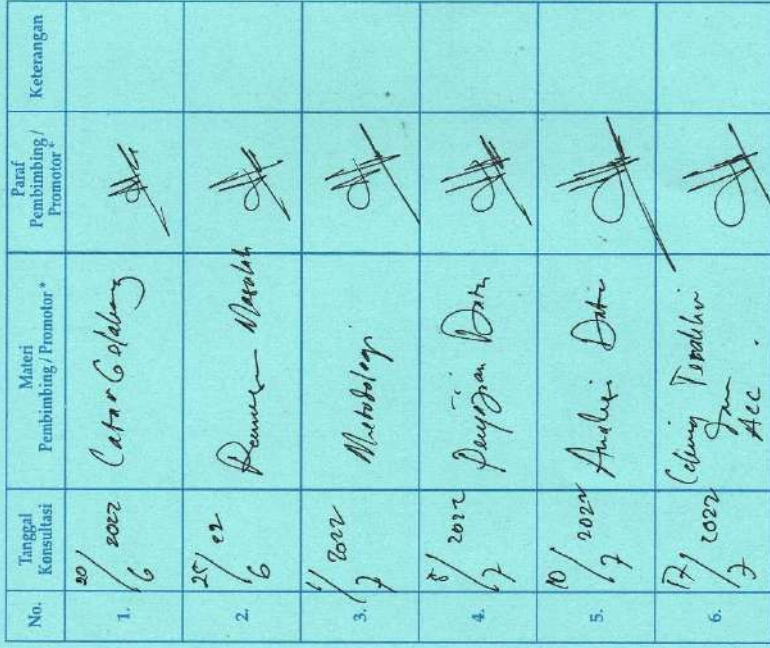 No. Tanggal Konsultasi Materi Pembimbing / Promotor * Paraf Pembimbing / Promotor * Keterangan
1. 20/6 2022 Latar Belakang
2. 25/6 22 Masalah
3. 1/7 2022 Metodologi
4. 8/7 2022 Penyajian Data
5. 10/7 2022 Analisis Data
6. 17/7 2022
Acc.